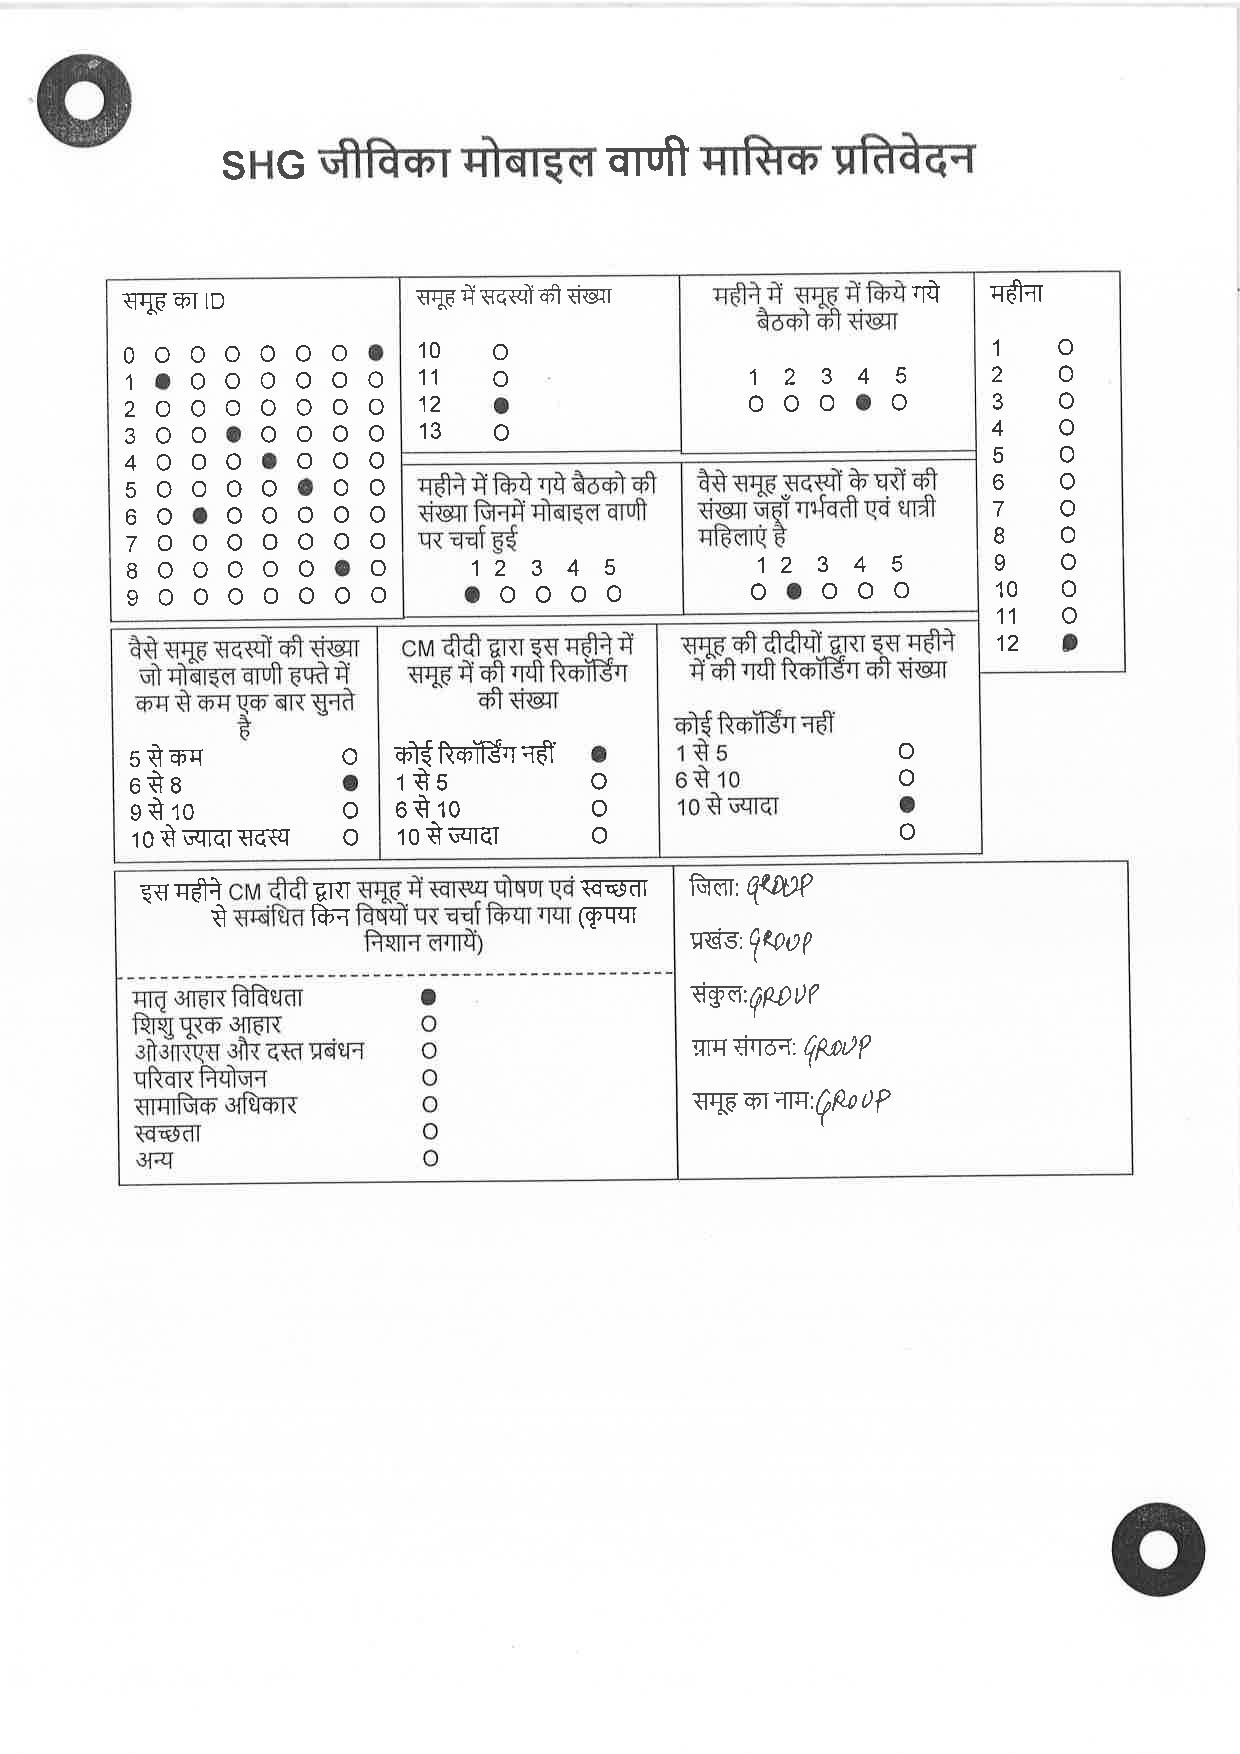 SHG जीविका मोबाइल वाणी मासिक प्रतिवेदन
समूह का ID
0
1
2
3
4
5
6
7
8
9
समूह में सदस्यों की संख्या
10
11
12
13
महीने में समूह में किये गये
बैठको की संख्या
1 2 3 4 5
महीना
1
2
3
4
5
6
7
8
9
10
11
12
महीने में किये गये बैठको की
संख्या जिनमें मोबाइल वाणी
पर चर्चा हुई
1 2 3 4 5
वैसे समूह सदस्यों के घरों की
संख्या जहाँ गर्भवती एवं धात्री
महिलाएं है
1 2 3 4 5
वैसे समूह सदस्यों की संख्या
जो मोबाइल वाणी हफ्ते में
कम से कम एक बार सुनते
है
5 से कम
6 से 8
9 से 10
10 से ज्यादा सदस्य
CM दीदी द्वारा इस महीने में
समूह में की गयी रिकॉर्डिंग
की संख्या
कोई रिकॉर्डिंग नहीं
1 से 5
6 से 10
10 से ज्यादा
समूह की दीदीयों द्वारा इस महीने
में की गयी रिकॉर्डिंग की संख्या
कोई रिकॉर्डिंग नहीं
1 से 5
6 से 10
10 से ज्यादा
इस महीने CM दीदी द्वारा समूह में स्वास्थ्य पोषण एवं स्वच्छता
से सम्बंधित किन विषयों पर चर्चा किया गया (कृपया
निशान लगायें)
मातृ आहार विविधता
शिशु पूरक आहार
ओआरएस और दस्त प्रबंधन
परिवार नियोजन
सामाजिक अधिकार
स्वच्छता
अन्य
जिला: GROUP
प्रखंड: GROUP
संकुल: GROUP
ग्राम संगठन: GROUP
समूह का नाम: GROUP